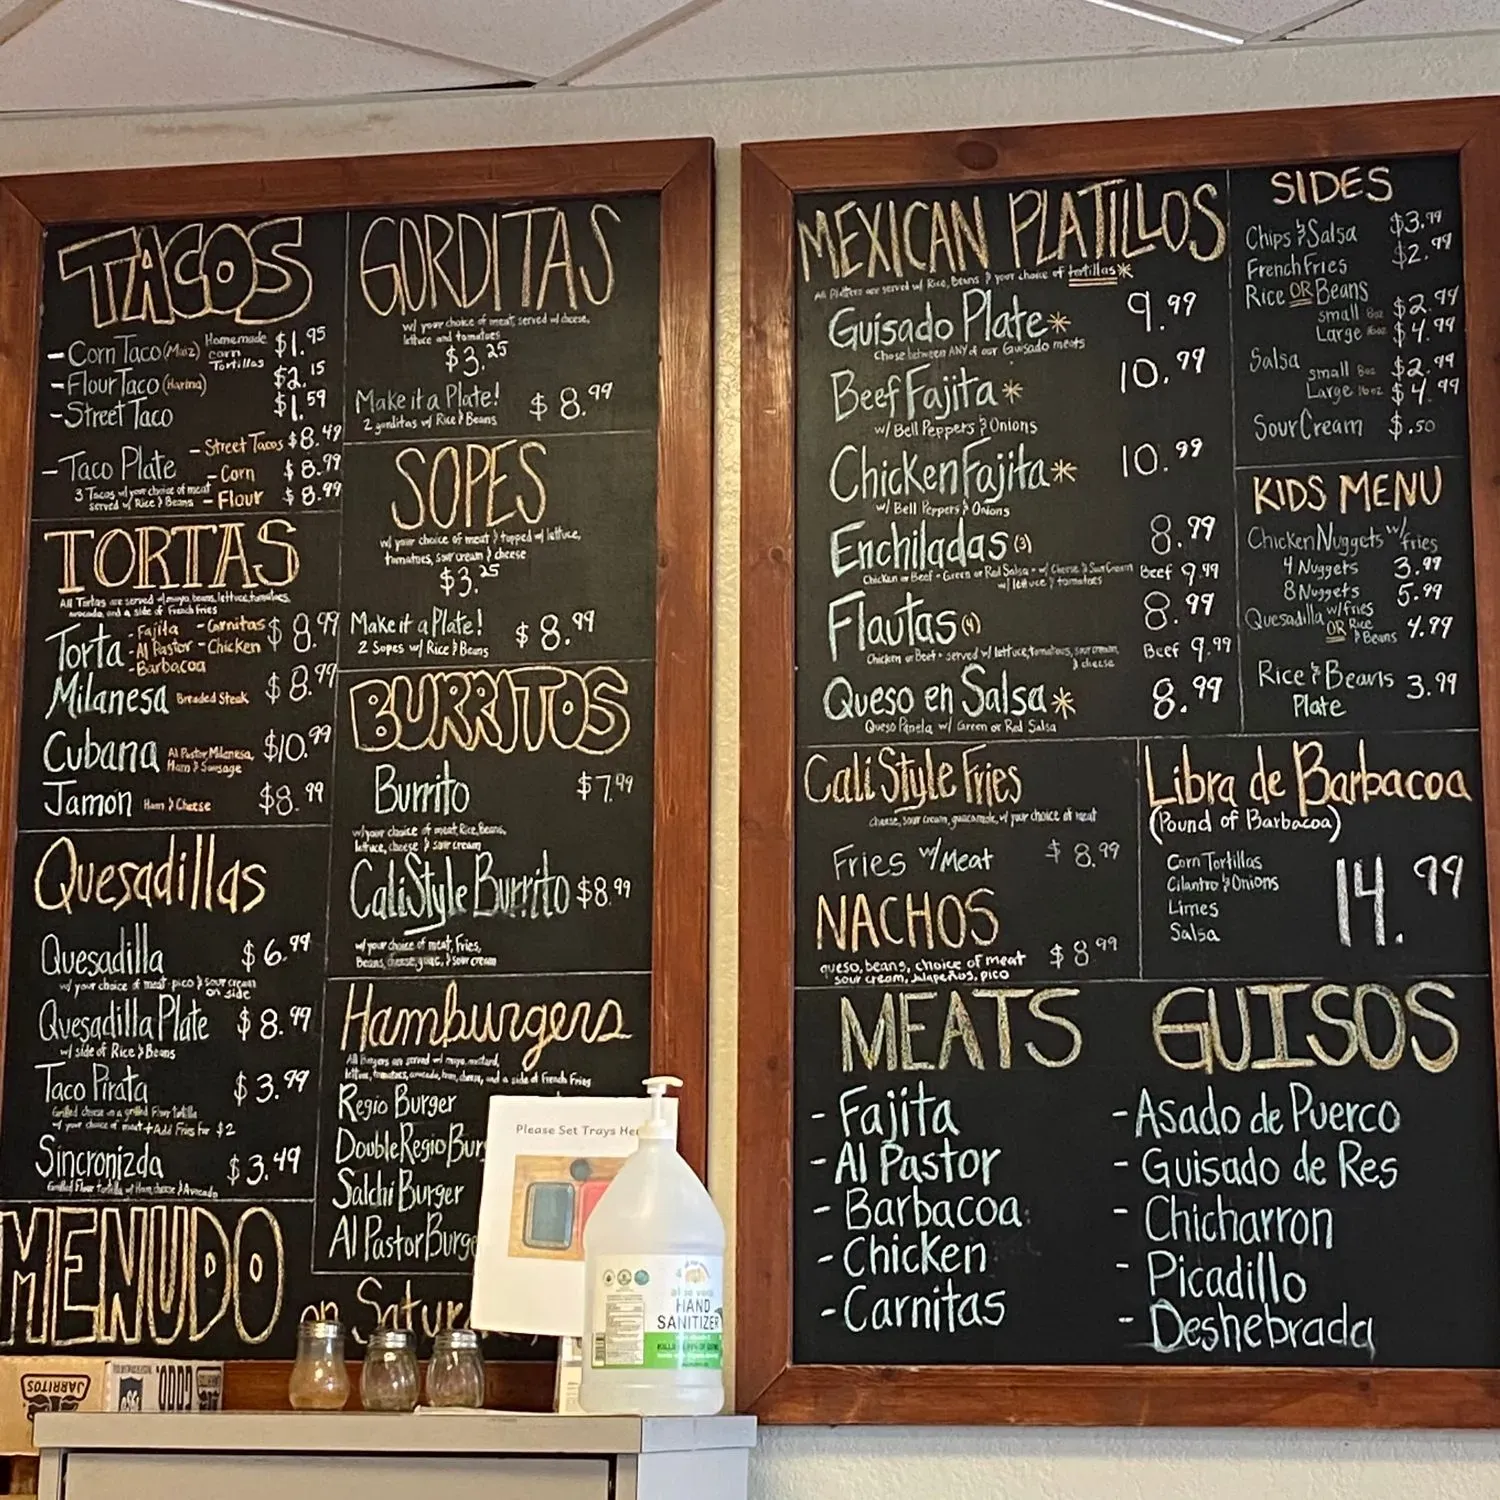 TACOS
- Corn Taco (Maiz) Homemade corn Tortillas $1.95
- Flour Taco (Harina) $2.15
- Street Taco $1.59
- Taco Plate
- Street Tacos $8.49
- Corn $8.99
- Flour $8.99
3 Tacos w/ your choice of meat
served w/ Rice & Beans
TORTAS
All Tortas are served w/ mayo, beans, lettuce, tomatoes,
avocado, and a side of French Fries
Torta - Fajita - Carnitas $8.99
- Al Pastor - Chicken
- Barbacoa
Milanesa Breaded Steak $8.99
Cubana Al Pastor, Milanesa, $10.99
Ham & Sausage
Jamón Ham & Cheese $8.99
Quesadillas
Quesadilla $6.99
w/ your choice of meat - pico & sour cream
on side
Quesadilla Plate $8.99
w/ side of Rice & Beans
Taco Pirata $3.99
Grilled cheese on a grilled Flour tortilla
w/ your choice of meat + Add Fries for $2
Sincronizda $3.49
Grilled Flour tortilla w/ Ham, cheese & Avocado
MENUDO
on Satur
GORDITAS
w/ your choice of meat, served w/ cheese,
lettuce and tomatoes
$3.25
Make it a Plate! $8.99
2 gorditas w/ Rice & Beans
SOPES
w/ your choice of meat & topped w/ lettuce,
tomatoes, sour cream & cheese
$3.25
Make it a Plate! $8.99
2 Sopes w/ Rice & Beans
BURRITOS
Burrito $7.99
w/ your choice of meat, Rice, Beans,
lettuce, cheese & sour cream
Cali Style Burrito $8.99
w/ your choice of meat, Fries,
Beans, cheese, guac, & sour cream
Hamburgers
All Burgers are served w/ mayo, mustard,
lettuce, tomatoes, avocado, ham, cheese, and a side of French Fries
Regio Burger
Double Regio Bur
Salchi Burger
Al Pastor Burge
Please Set Trays He
aloe vera
HAND
SANITIZER
JARRITOS
MEXICAN PLATILLOS
All Platters are served w/ Rice, Beans & your choice of tortillas*
Guisado Plate* 9.99
Chose between ANY of our Guisado meats
Beef Fajita* 10.99
w/ Bell Peppers & Onions
Chicken Fajita* 10.99
w/ Bell Peppers & Onions
Enchiladas (3) 8.99
Chicken or Beef - Green or Red Salsa - w/ Cheese & Sour Cream Beef 9.99
w/ lettuce & tomatoes
Flautas (4) 8.99
Chicken or Beef - served w/ lettuce, tomatoes, sour cream, Beef 9.99
& cheese
Queso en Salsa* 8.99
Queso Panela w/ Green or Red Salsa
SIDES
Chips & Salsa $3.99
French Fries $2.99
Rice OR Beans
small 8oz $2.99
Large 16oz $4.99
Salsa
small 8oz $2.99
Large 16oz $4.99
Sour Cream $.50
KIDS MENU
Chicken Nuggets w/ fries
4 Nuggets 3.99
8 Nuggets 5.99
Quesadilla w/ fries
OR Rice & Beans 4.99
Rice & Beans 3.99
Plate
Cali Style Fries
cheese, sour cream, guacamole, w/ your choice of meat
Fries w/ Meat $8.99
NACHOS $8.99
queso, beans, choice of meat
sour cream, jalapeños, pico
Libra de Barbacoa
(Pound of Barbacoa)
Corn Tortillas
Cilantro & Onions
Limes
Salsa
14.99
MEATS
- Fajita
- Al Pastor
- Barbacoa
- Chicken
- Carnitas
GUISOS
- Asado de Puerco
- Guisado de Res
- Chicharron
- Picadillo
- Deshebrada